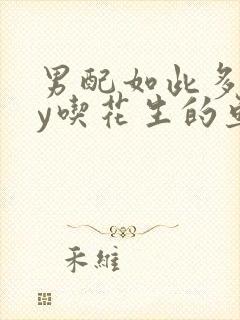 男配如此多
y喫花生的
禾維